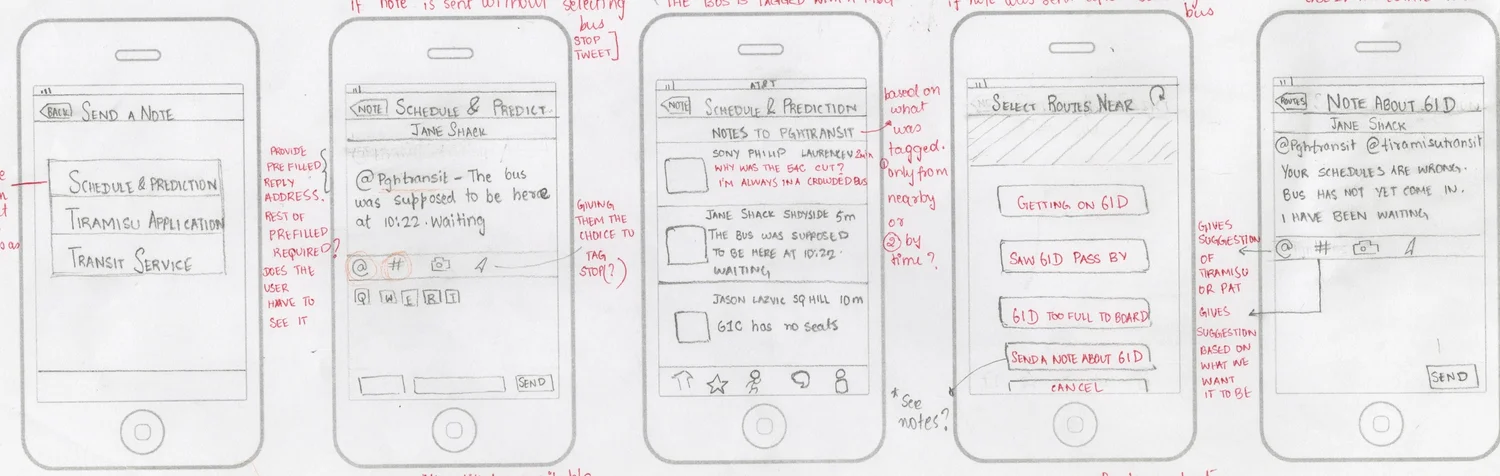 If note is sent without selecting
bus
STOP
TWEET]
THE BUS IS TAGGED WITH A
bus
BACK
SEND A NOTE
SCHEDULE & PREDICTION
TIRAMISU APPLICATION
TRANSIT SERVICE
PROVIDE
PREFILLED
REPLY
ADDRESS.
REST OF
PREFILLED
REQUIRED?
DOES THE
USER
HAVE TO
SEE IT
NOTE
SCHEDULE & PREDICT.
JANE SHACK
@Pghtransit - The bus
was supposed to be here
at 10:22. Waiting
@ #
Q W E R T
SEND
GIVING
THEM THE
CHOICE TO
TAG
STOP(?)
AT&T
NOTE
SCHEDULE & PREDICTION
NOTES TO PGHTRANSIT
SONY PHILIP LAURENCEV 2min
WHY WAS THE 54C CUT?
I'M ALWAYS IN A CROWDED BUS
JANE SHACK SHDYSIDE 5m
THE BUS WAS SUPPOSED
TO BE HERE AT 10:22.
WAITING
JASON LAZVIC SQ HILL 10m
61C has no seats
based on
what
was
tagged.
① only from
nearby
or
② by
time?
SELECT ROUTES NEAR
GETTING ON 61D
SAW 61D PASS BY
61D TOO FULL TO BOARD
SEND A NOTE ABOUT 61D
CANCEL
* See
notes?
ROUTES
NOTE ABOUT 61D
JANE SHACK
@Pghtransit @tiramisutransit
YOUR SCHEDULES ARE WRONG.
BUS HAS NOT YET COME IN.
I HAVE BEEN WAITING
@ #
SEND
GIVES
SUGGESTION
OF
TIRAMISU
OR PAT
GIVES
SUGGESTION
BASED ON
WHAT WE
WANT
IT TO BE